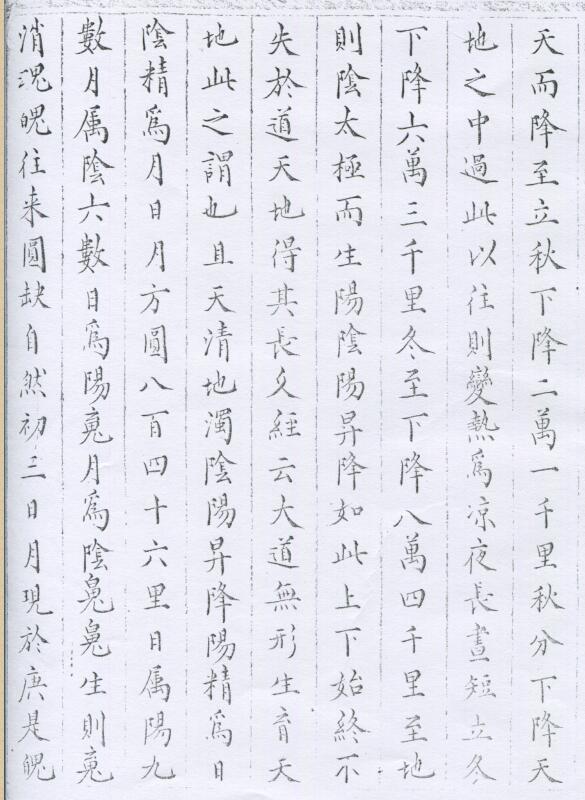 天而降至立秋下降二萬一千里秋分下降天
地之中過此以往則變熱爲凉夜長晝短立冬
下降六萬三千里冬至下降八萬四千里至地
則陰太極而生陽陰陽昇降如此上下始終不
失於道天地得其長久經云大道無形生育天
地此之謂也且天清地濁陰陽昇降陽精爲日
陰精爲月日月方圓八百四十六里日属陽九
數月属陰六數日爲陽月爲陰生則
消魂魄往来圓缺自然初三日月現於庚是魄